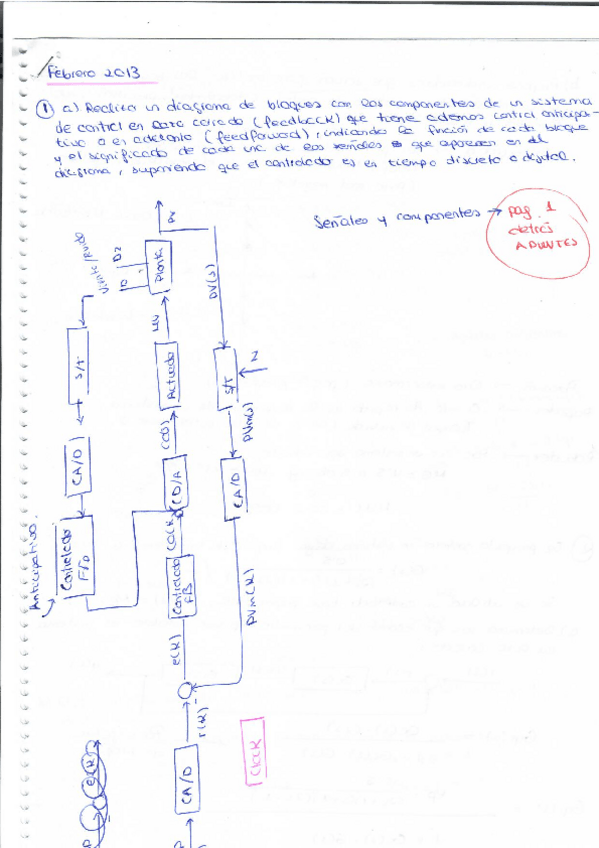 Febrero 2013
① a) Realizar un diagrama de bloques con los componentes de un sistema
de control en lazo cerrado (feedback) que tiene además control anticipa-
tivo o en adelanto (feedforward), indicando la función de cada bloque
y el significado de cada una de las señales que aparecen en el
diagrama, suponiendo que el controlador es en tiempo discreto o digital.
Señales y componentes → pag. 1
detrás
APUNTES
Viento/Ruido
S/T
CA/D
Controlador
F/D
Anticipativo.
D2
Planta
Actuador
CD/A
CO(K)
Controlador
FB
e(K)
r(K)
CA/D
PV(s)
S/T
N
PVm(s)
CA/D
PVm(K)
Clock
e(K)